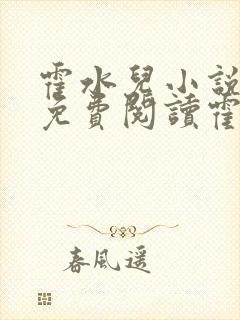 霍水兒小說
免費閱讀霍
春風遥